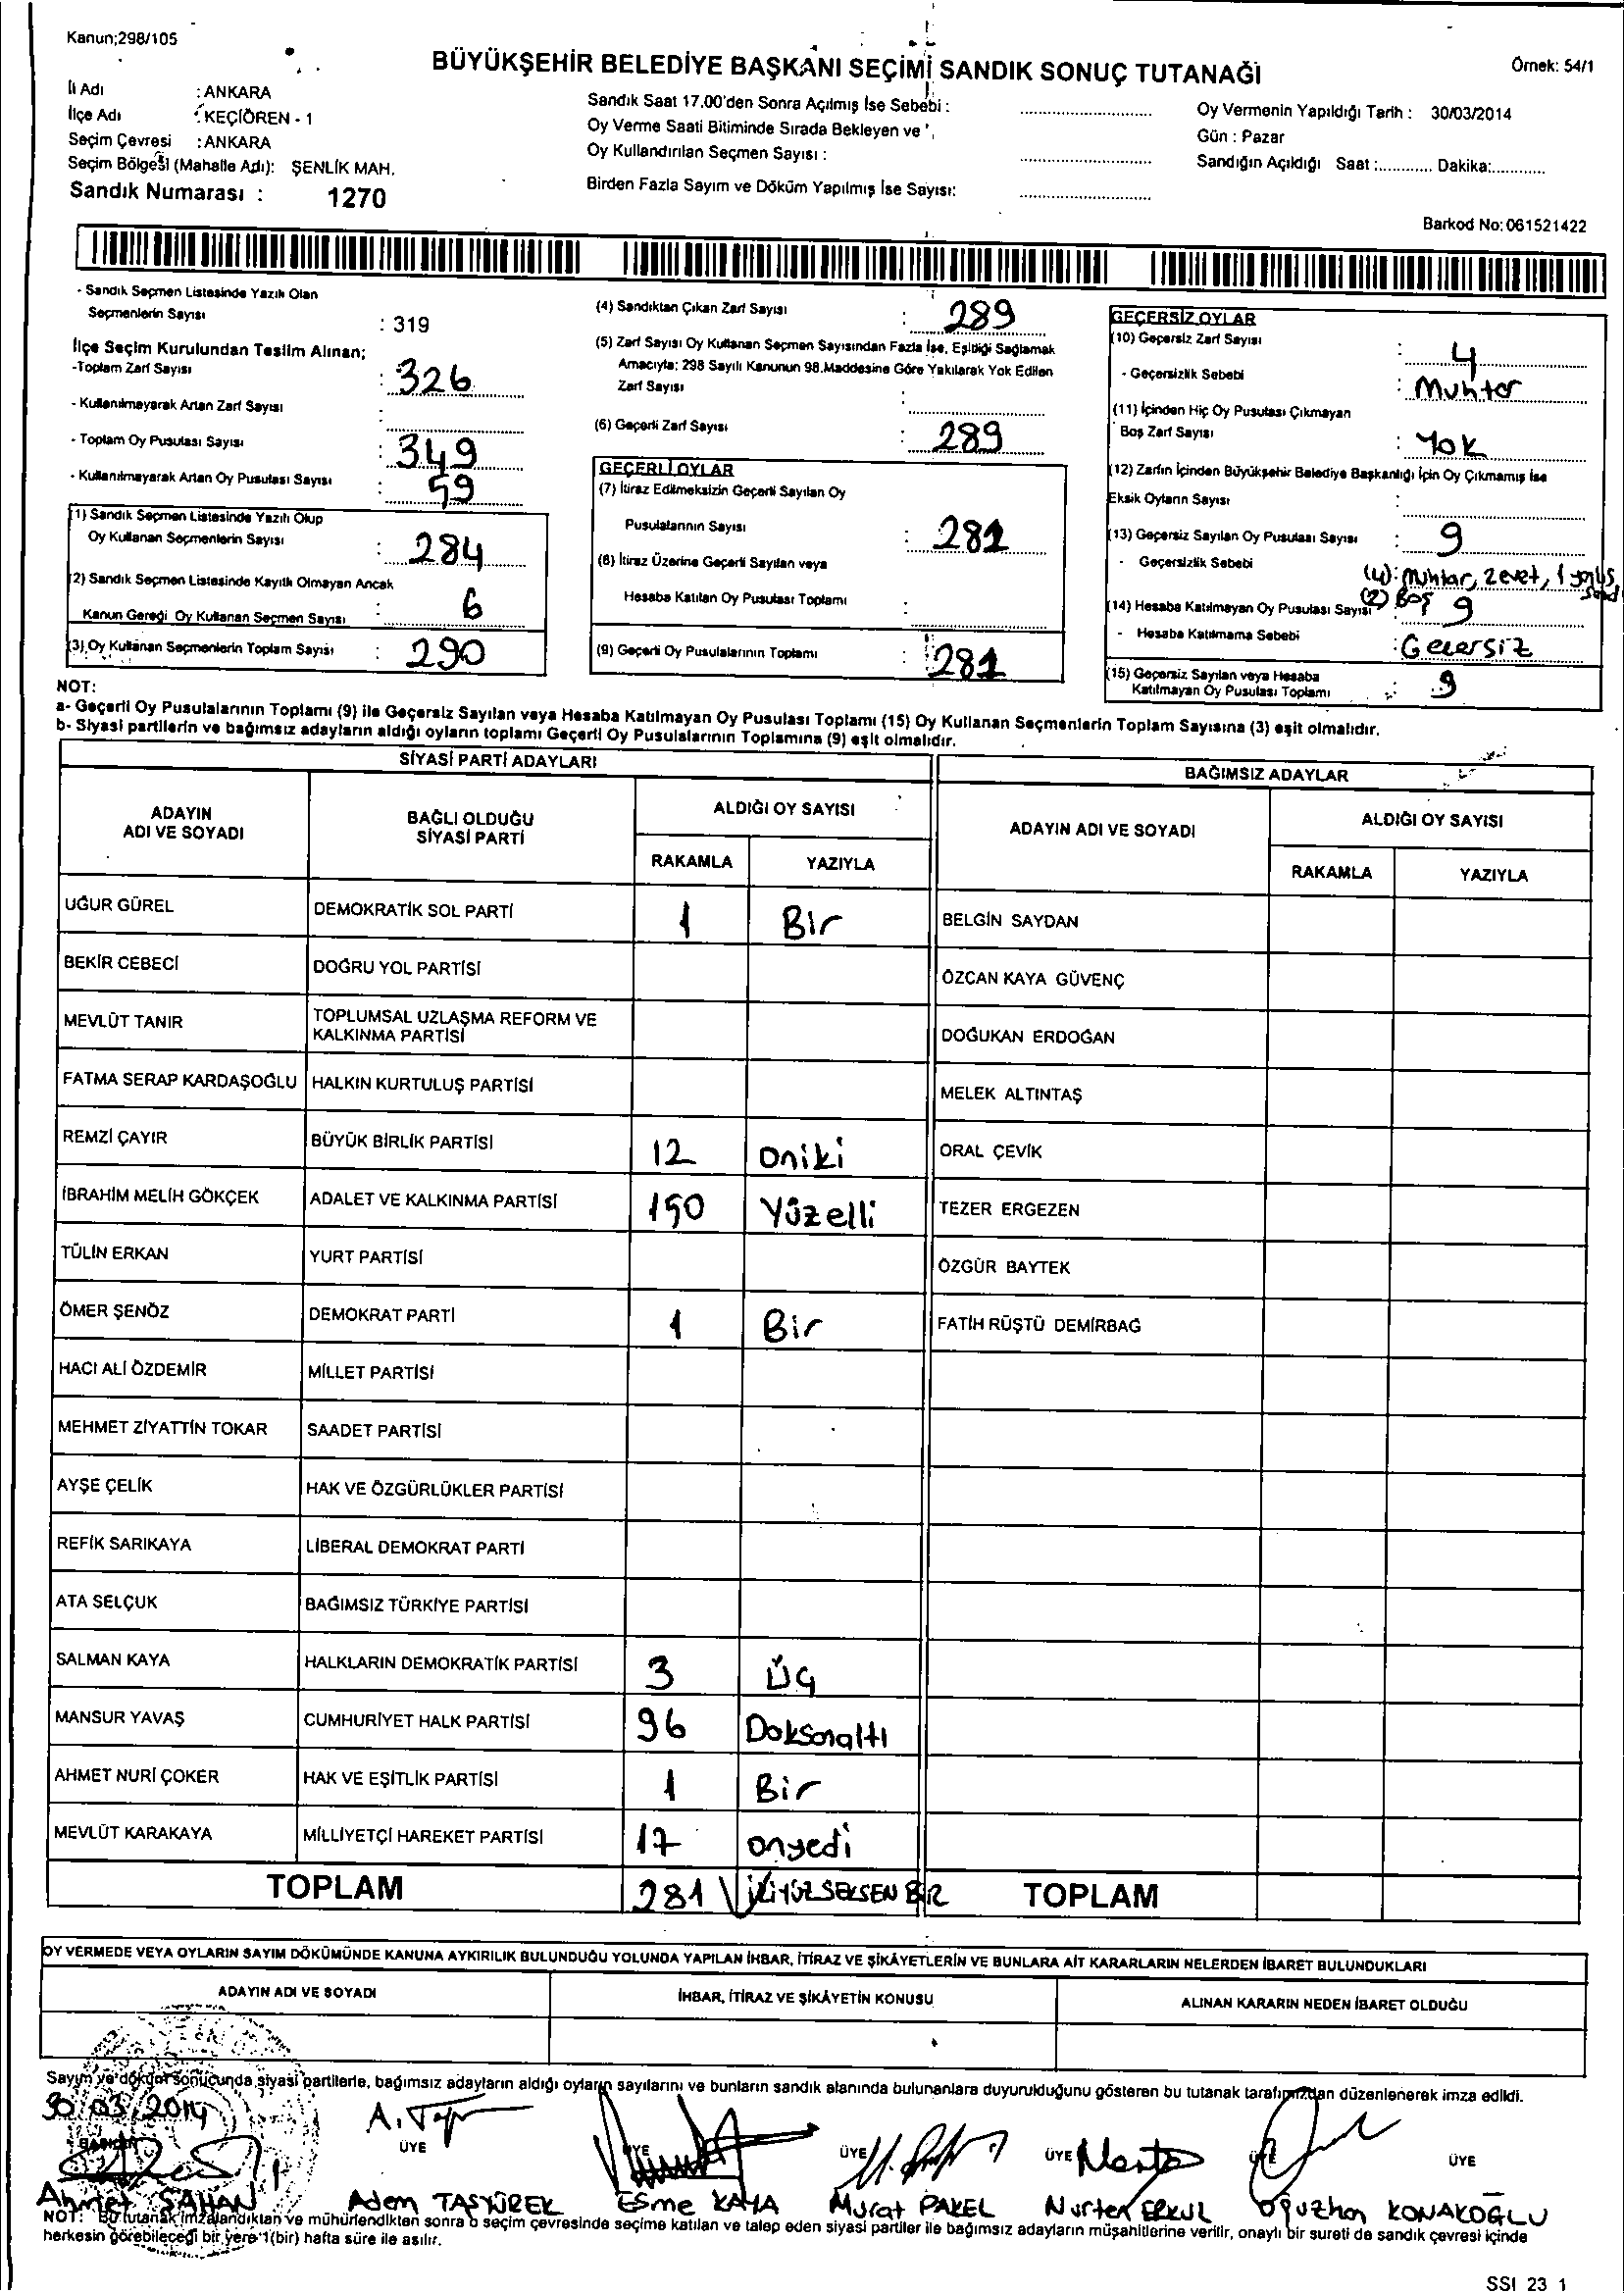 Kanun;298/105
BÜYÜKŞEHİR BELEDİYE BAŞKANI SEÇİMİ SANDIK SONUÇ TUTANAĞI
Örnek: 54/1
İli Adı : ANKARA
İlçe Adı : KEÇİÖREN - 1
Seçim Çevresi : ANKARA
Seçim Bölgesi (Mahalle Adı): ŞENLİK MAH.
Sandık Numarası : 1270
Sandık Saat 17.00'den Sonra Açılmış İse Sebebi :
Oy Verme Saati Bitiminde Sırada Bekleyen ve
Oy Kullandırılan Seçmen Sayısı :
Birden Fazla Sayım ve Döküm Yapılmış İse Sayısı:
Oy Vermenin Yapıldığı Tarih : 30/03/2014
Gün : Pazar
Sandığın Açıldığı Saat :............ Dakika:............
Barkod No:061521422
- Sandık Seçmen Listesinde Yazılı Olan
Seçmenlerin Sayısı : 319
İlçe Seçim Kurulundan Teslim Alınan;
-Toplam Zarf Sayısı : 326
- Kullanılmayarak Artan Zarf Sayısı :
- Toplam Oy Pusulası Sayısı : 349
- Kullanılmayarak Artan Oy Pusulası Sayısı : 59
(1) Sandık Seçmen Listesinde Yazılı Olup
Oy Kullanan Seçmenlerin Sayısı : 284
(2) Sandık Seçmen Listesinde Kayıtlı Olmayan Ancak
Kanun Gereği Oy Kullanan Seçmen Sayısı : 6
(3) Oy Kullanan Seçmenlerin Toplam Sayısı : 290
(4) Sandıktan Çıkan Zarf Sayısı : 289
(5) Zarf Sayısı Oy Kullanan Seçmen Sayısından Fazla İse, Eşitliği Sağlamak
Amacıyla; 298 Sayılı Kanunun 98.Maddesine Göre Yakılarak Yok Edilen
Zarf Sayısı :
(6) Geçerli Zarf Sayısı : 289
GEÇERLİ OYLAR
(7) İtiraz Edilmeksizin Geçerli Sayılan Oy
Pusulalarının Sayısı : 281
(8) İtiraz Üzerine Geçerli Sayılan veya
Hesaba Katılan Oy Pusulası Toplamı :
(9) Geçerli Oy Pusulalarının Toplamı : 281
GEÇERSİZ OYLAR
(10) Geçersiz Zarf Sayısı : 4
- Geçersizlik Sebebi : Muhtar
(11) İçinden Hiç Oy Pusulası Çıkmayan
Boş Zarf Sayısı : Yok
(12) Zarfın İçinden Büyükşehir Belediye Başkanlığı İçin Oy Çıkmamış İse
Eksik Oyların Sayısı :
(13) Geçersiz Sayılan Oy Pusulası Sayısı : 9
- Geçersizlik Sebebi (4): Muhtar, 2 evet, 1
(2) Boş
(14) Hesaba Katılmayan Oy Pusulası Sayısı 9
- Hesaba Katılmama Sebebi : Gecersiz
(15) Geçersiz Sayılan veya Hesaba
Katılmayan Oy Pusulası Toplamı : 9
NOT:
a- Geçerli Oy Pusulalarının Toplamı (9) ile Geçersiz Sayılan veya Hesaba Katılmayan Oy Pusulası Toplamı (15) Oy Kullanan Seçmenlerin Toplam Sayısına (3) eşit olmalıdır.
b- Siyasi partilerin ve bağımsız adayların aldığı oyların toplamı Geçerli Oy Pusulalarının Toplamına (9) eşit olmalıdır.
SİYASİ PARTİ ADAYLARI BAĞIMSIZ ADAYLAR
ADAYIN ADI VE SOYADI BAĞLI OLDUĞU SİYASİ PARTİ ALDIĞI OY SAYISI ADAYIN ADI VE SOYADI ALDIĞI OY SAYISI
RAKAMLA YAZIYLA RAKAMLA YAZIYLA
UĞUR GÜREL DEMOKRATİK SOL PARTİ 1 Bir BELGİN SAYDAN
BEKİR CEBECİ DOĞRU YOL PARTİSİ ÖZCAN KAYA GÜVENÇ
MEVLÜT TANIR TOPLUMSAL UZLAŞMA REFORM VE KALKINMA PARTİSİ DOĞUKAN ERDOĞAN
FATMA SERAP KARDAŞOĞLU HALKIN KURTULUŞ PARTİSİ MELEK ALTINTAŞ
REMZİ ÇAYIR BÜYÜK BİRLİK PARTİSİ 12 oniki ORAL ÇEVİK
İBRAHİM MELİH GÖKÇEK ADALET VE KALKINMA PARTİSİ 150 Yüzelli TEZER ERGEZEN
TÜLİN ERKAN YURT PARTİSİ ÖZGÜR BAYTEK
ÖMER ŞENÖZ DEMOKRAT PARTİ 1 Bir FATİH RÜŞTÜ DEMİRBAĞ
HACI ALİ ÖZDEMİR MİLLET PARTİSİ
MEHMET ZİYATTİN TOKAR SAADET PARTİSİ
AYŞE ÇELİK HAK VE ÖZGÜRLÜKLER PARTİSİ
REFİK SARIKAYA LİBERAL DEMOKRAT PARTİ
ATA SELÇUK BAĞIMSIZ TÜRKİYE PARTİSİ
SALMAN KAYA HALKLARIN DEMOKRATİK PARTİSİ 3 Üç
MANSUR YAVAŞ CUMHURİYET HALK PARTİSİ 96 Doksanaltı
AHMET NURİ ÇOKER HAK VE EŞİTLİK PARTİSİ 1 Bir
MEVLÜT KARAKAYA MİLLİYETÇİ HAREKET PARTİSİ 17 onyedi
TOPLAM 281 İKİYÜZSEKSEN BİR TOPLAM
OY VERMEDE VEYA OYLARIN SAYIM DÖKÜMÜNDE KANUNA AYKIRILIK BULUNDUĞU YOLUNDA YAPILAN İHBAR, İTİRAZ VE ŞİKÂYETLERİN VE BUNLARA AİT KARARLARIN NELERDEN İBARET BULUNDUKLARI
ADAYIN ADI VE SOYADI İHBAR, İTİRAZ VE ŞİKÂYETİN KONUSU ALINAN KARARIN NEDEN İBARET OLDUĞU
Sayım ve döküm sonucunda siyasi partilerle, bağımsız adayların aldığı oyların sayılarını ve bunların sandık alanında bulunanlara duyurulduğunu gösteren bu tutanak tarafımızdan düzenlenerek imza edildi.
30.03.2014
BAŞKAN ÜYE ÜYE ÜYE ÜYE ÜYE ÜYE
Ahmet ŞAHAN Adem TAŞYÜREK Esme KAYA Murat PAKEL Nurten ERKUL Oğuzhan KONAKOĞLU
NOT: Bu tutanak imzalandıktan ve mühürlendikten sonra o seçim çevresinde seçime katılan ve talep eden siyasi partiler ile bağımsız adayların müşahitlerine verilir, onaylı bir sureti de sandık çevresi içinde
herkesin görebileceği bir yere 1(bir) hafta süre ile asılır.
SSI 23 1